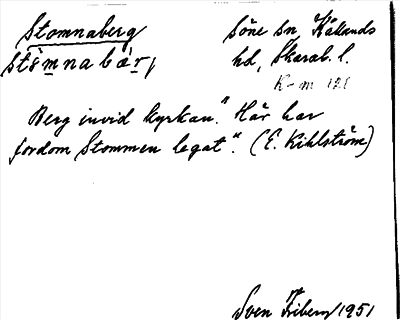 Stomnaberg
Söne sn, Kållands
stòmnabær,
hd, Skarab. l.
K-m 121
Berg invid kyrkan. "Här har
fordom Stommen legat". (E. Kihlström)
Sven Friberg 1951